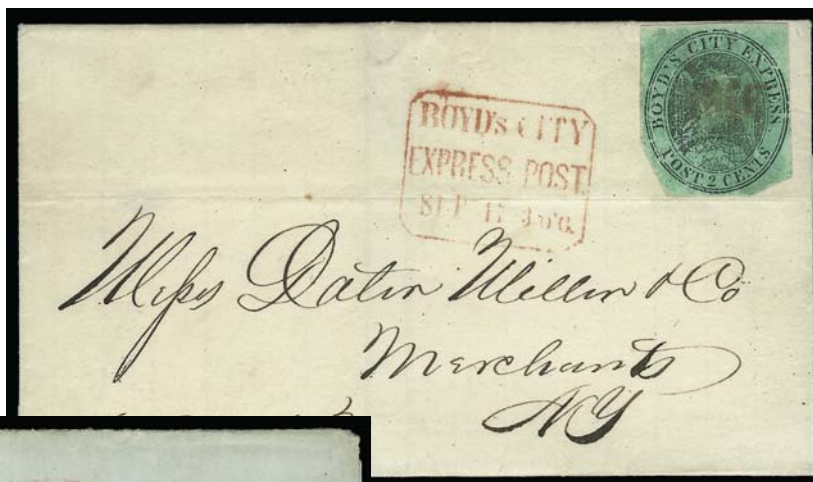 BOYD'S CITY EXPRESS.
POST 2 CENTS
BOYD's CITY
EXPRESS POST
SEP 17
Mess Dater Miller & Co
Merchants
NY